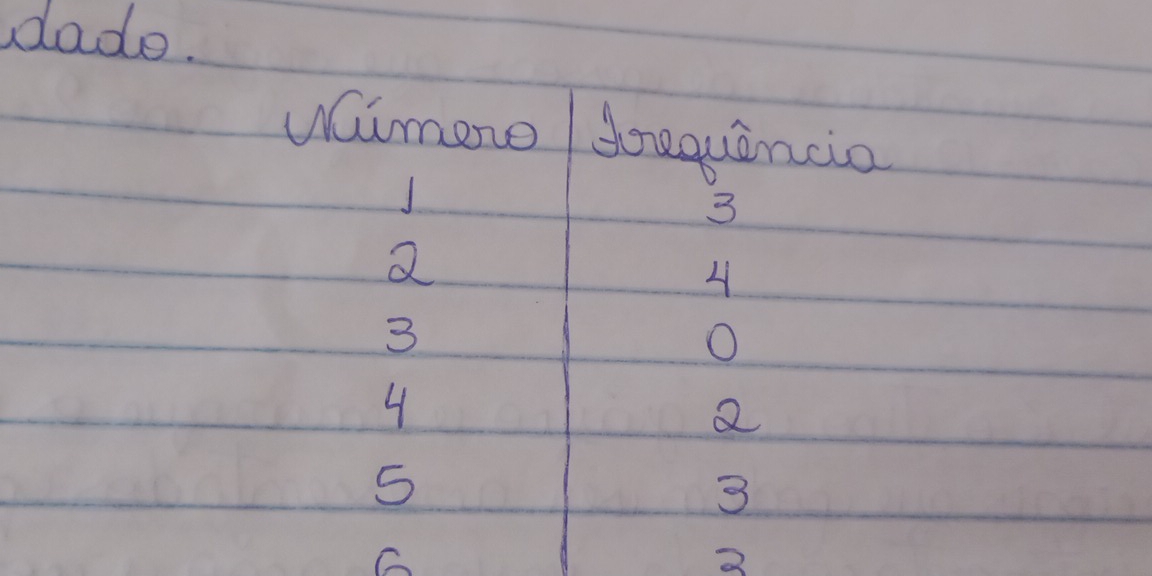 dado.
Número | Frequência
1 3
2 4
3 0
4 2
5 3
6 3